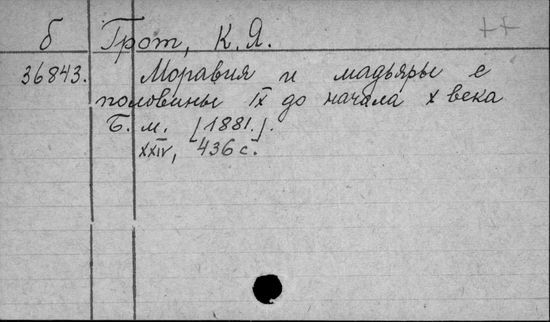 б Грот, К. Я. ++
36843. Моравия и мадьяры с
половины IX до начала X века
Б. м. [1881.].
XXIV, 436 с.